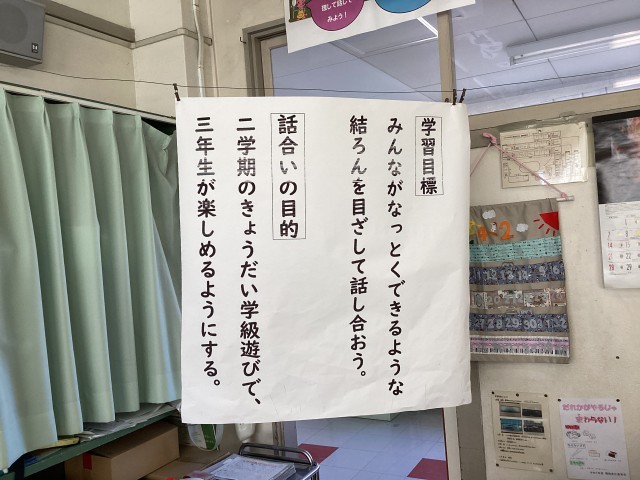 学習目標
みんながなっとくできるような
結ろんを目ざして話し合おう。
話合いの目的
二学期のきょうだい学級遊びで、
三年生が楽しめるようにする。
探して話して
みよう！
だれかがやるじゃ
変わらない！